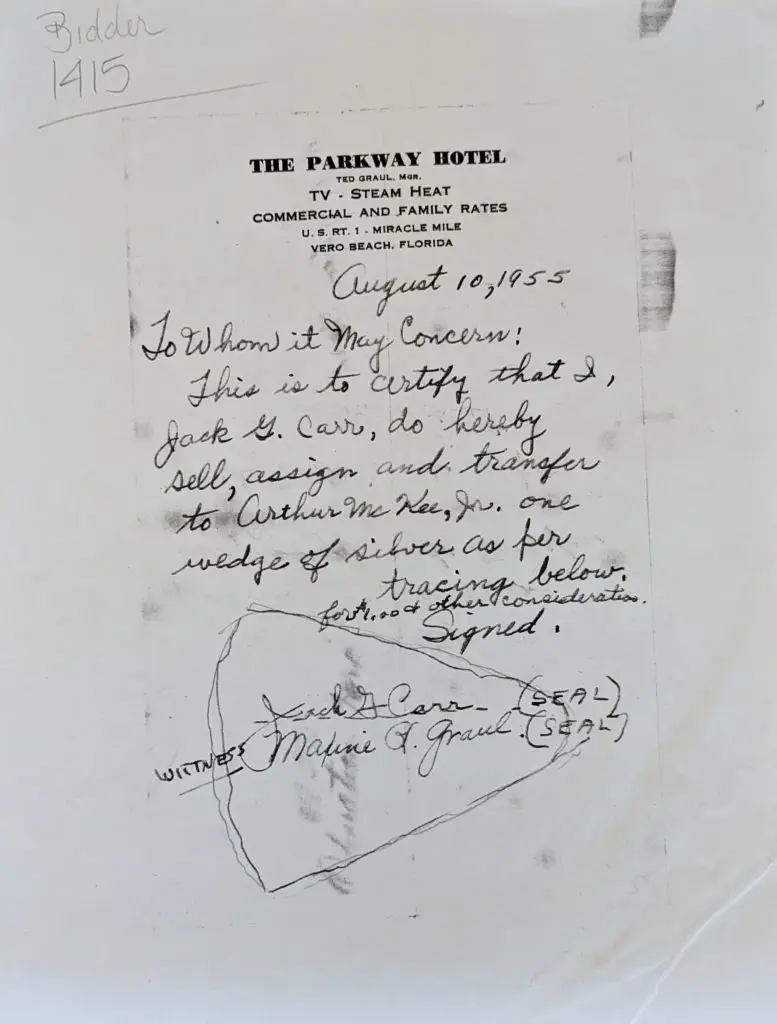 Bidder
1415
THE PARKWAY HOTEL
TED GRAUL, MGR.
TV - STEAM HEAT
COMMERCIAL AND FAMILY RATES
U. S. RT. 1 - MIRACLE MILE
VERO BEACH, FLORIDA
August 10, 1955
To Whom it May Concern:
This is to certify that I,
Jack G. Carr, do hereby
sell, assign and transfer
to Arthur McKee, Jr. one
wedge of silver as per
tracing below.
for $1.00 & other consideration.
Signed.
Jack G Carr (SEAL)
WITNESS Maxine Graul (SEAL)